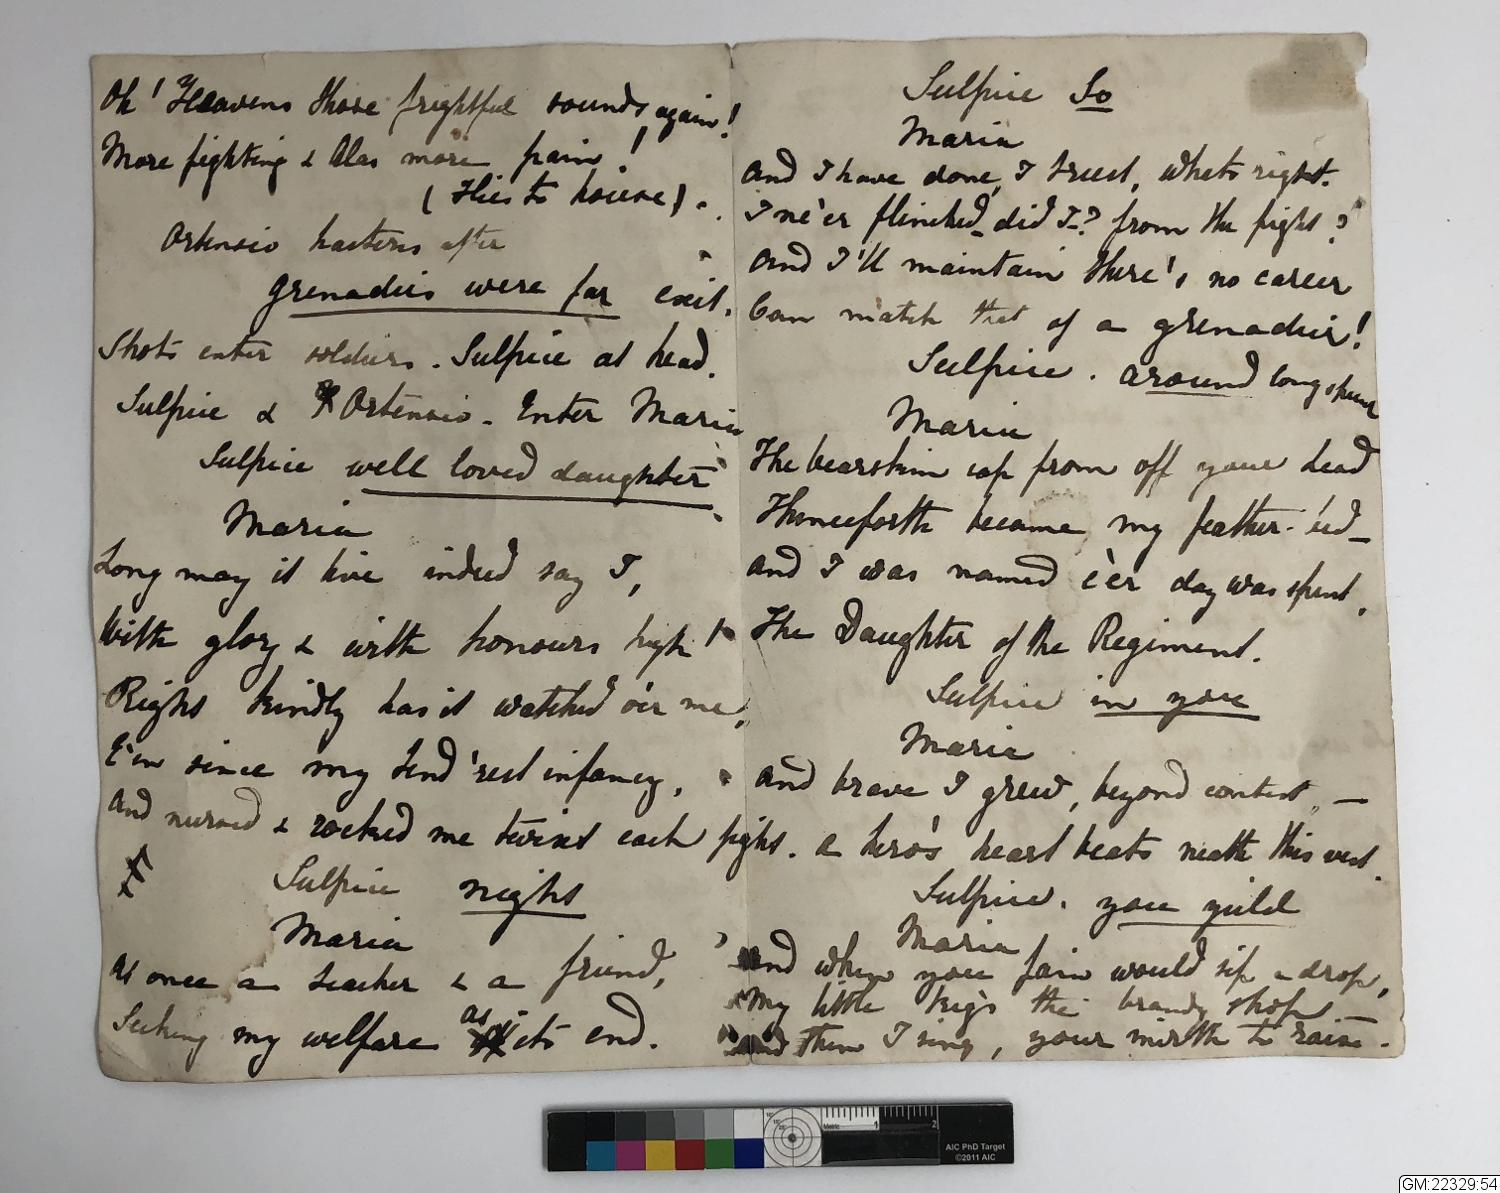 Oh! Heavens those frightful sounds again!
More fighting & Alas more pain!
(Flies to house).
Ortensio hastens after
grenadiers were far exit.
Shots enter soldiers. Sulpice at head.
Sulpice & Ortensio. Enter Maria
Sulpice well loved daughter
Maria
Long may it live indeed say I,
With glory & with honours high!
Right kindly has it watched o'er me,
E'en since my tend'rest infancy,
And nursed & rocked me twixt each fight.
Sulpice night
Maria
At once a teacher & a friend,
Seeking my welfare as its end.
Sulpice So
Maria
And I have done, I trust, whats right.
I ne'er flinched did I-? from the fight?
And I'll maintain there's no career
Can match that of a grenadier!
Sulpice. around long spent
Maria
The bearskin cap from off your head
Thenceforth became my feather-bed_
And I was named e'er day was spent,
The Daughter of the Regiment.
Sulpice in you
Maria
And brave I grew, beyond contest, —
A hero's heart beats neath this vest.
Sulpice. you yield
Maria
And when you fain would sip a drop,
My little keg's the brandy shop —
And then I sing, your mirth to raise.
Metric 1 2
AIC PhD Target
©2011 AIC
GM:22329:54